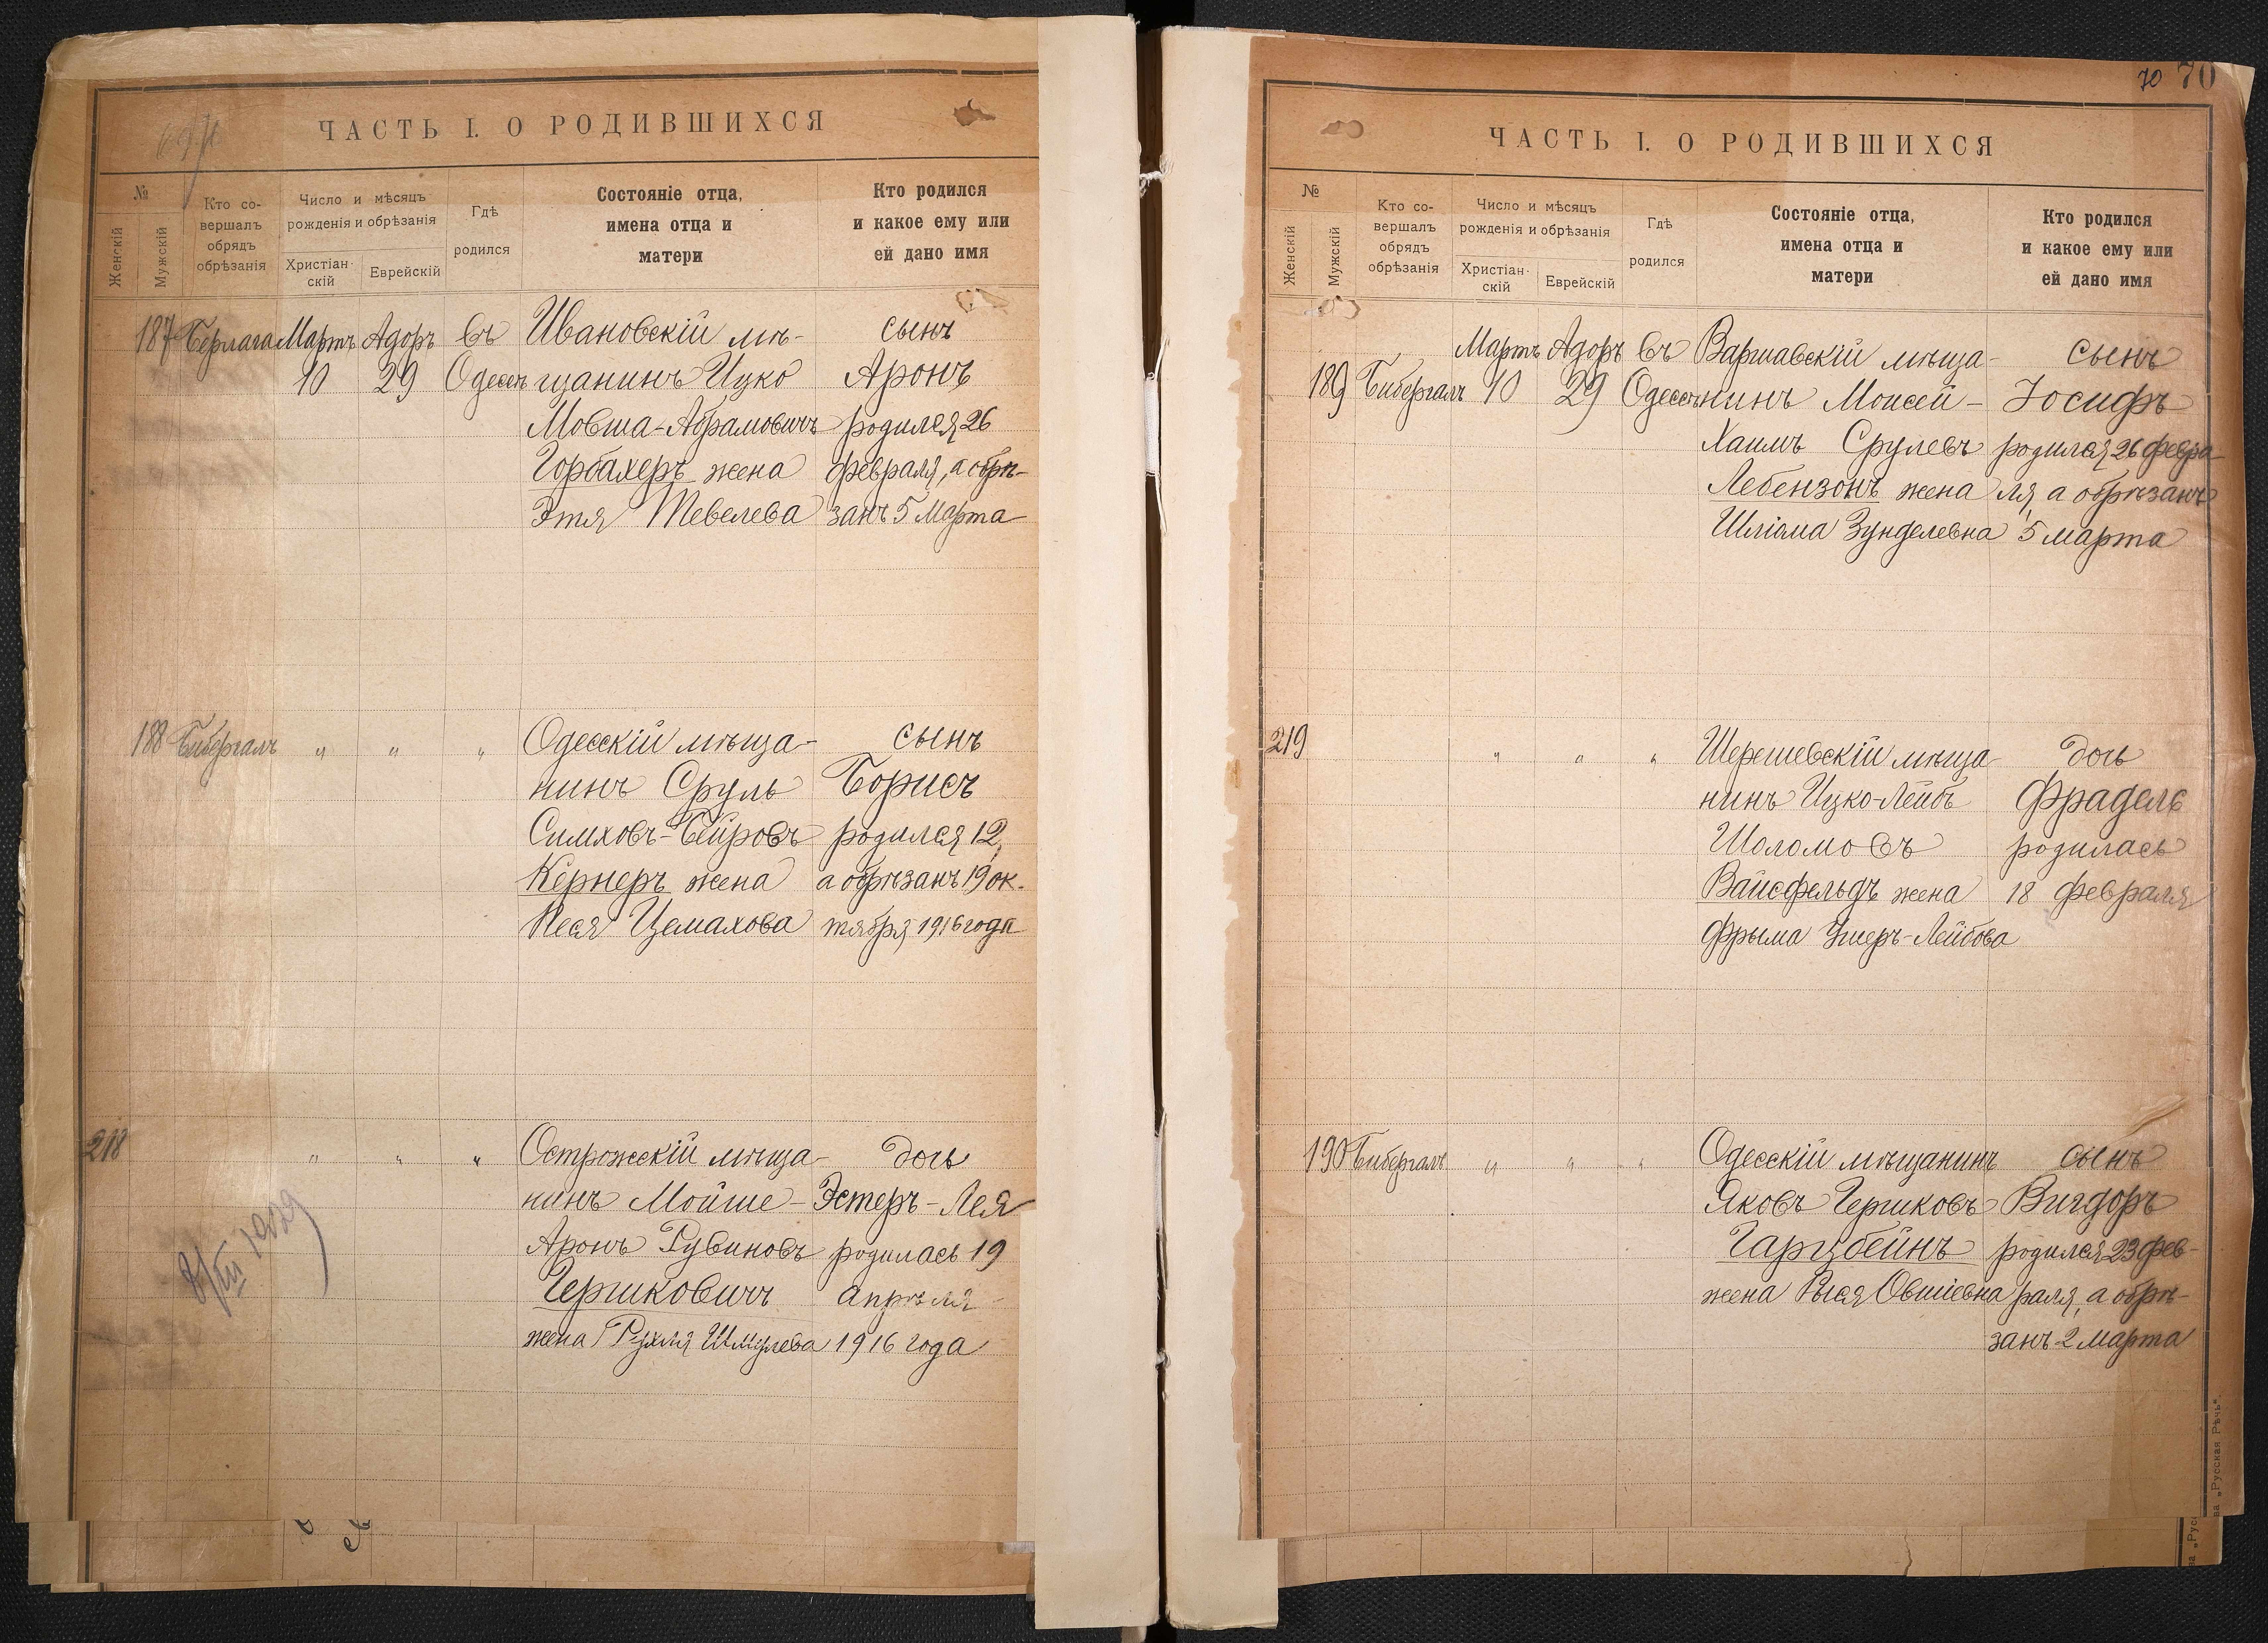 ЧАСТЬ I. О РОДИВШИХСЯ
№
Женскій
Мужскій
Кто со-
вершалъ
обрядъ
обрѣзанія
Число и мѣсяцъ
рожденія и обрѣзанія
Христіан-
скій
Еврейскій
Гдѣ
родился
Состояніе отца,
имена отца и
матери
Кто родился
и какое ему или
ей дано имя
187 Мартъ Адоръ Въ Ивановскій мѣ- сынъ
10 29 Одессѣ щанинъ Ицко Аронъ
Мовша-Абрамовичъ родился 26
Горбахеръ жена февраля, а обрѣ-
Этя Тевелева занъ 5 Марта
188 Бибергалъ " " " Одесскій мѣща- сынъ
нинъ Сруль Борисъ
Симховъ-Беировъ родился 12,
Кернеръ жена а обрѣзанъ 19 ок-
Песя Цемахова тября 1916 года
218 " " " Острожскій мѣща- дочь
нинъ Мойше- Эстеръ-Лея
Аронъ Рубиновъ родилась 19
Гершковичъ апрѣля
жена Рухля Шмулева 1916 года
70 70
ЧАСТЬ I. О РОДИВШИХСЯ
№
Женскій
Мужскій
Кто со-
вершалъ
обрядъ
обрѣзанія
Число и мѣсяцъ
рожденія и обрѣзанія
Христіан-
скій
Еврейскій
Гдѣ
родился
Состояніе отца,
имена отца и
матери
Кто родился
и какое ему или
ей дано имя
Мартъ Адоръ Въ Варшавскій мѣща- сынъ
189 Бибергалъ 10 29 Одессѣ нинъ Моисей- Іосифъ
Хаимъ Срулевъ родился 26 февра
Лебензонъ жена ля, а обрѣзанъ
Шліома Зунделевна 5 марта
219 " " " Шерешевскій мѣща- дочь
нинъ Ицко-Лейбъ Фрадель
Шоломовъ родилась
Вайсфельдъ жена 18 февраля
Фрыма Ушеръ-Лейбова
190 Бибергалъ " " " Одесскій мѣщанинъ сынъ
Яковъ Гершковъ Вигдоръ
Гарцбейнъ родился 23 фев-
жена Рыся Овшіевна раля, а обрѣ-
занъ 2 марта
ва „Русская Рѣчь“